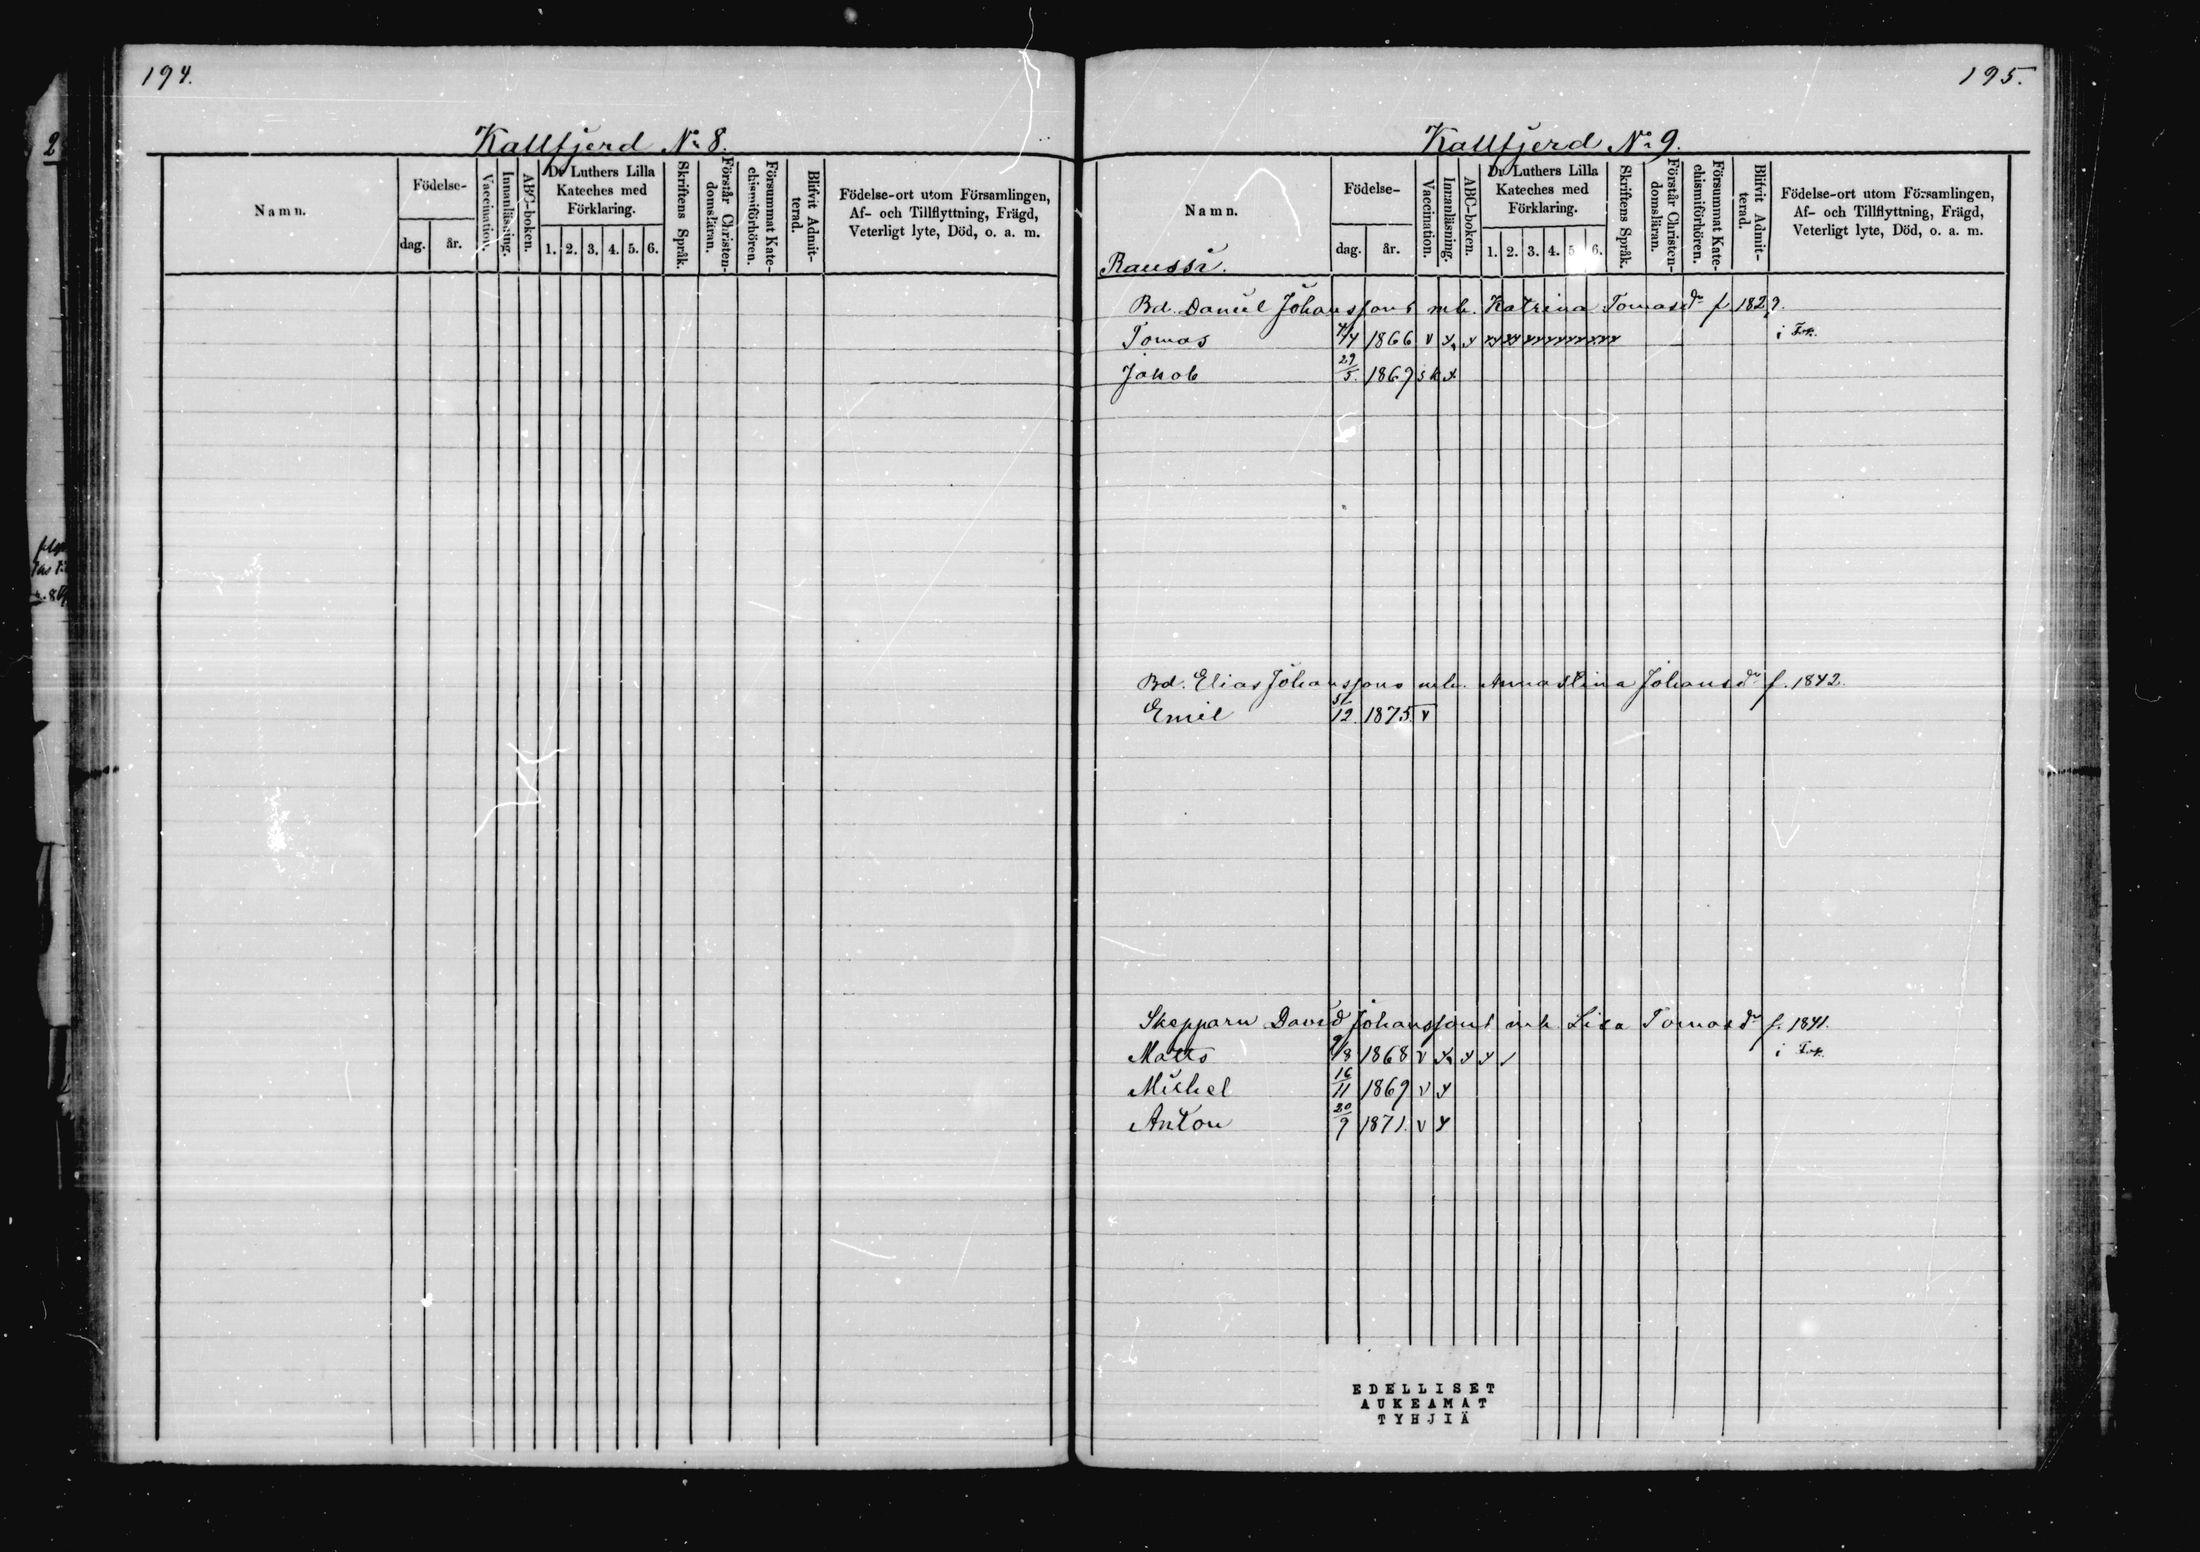 194.
Kallfjerd No 8.
Namn.
Födelse-
dag. år.
Vaccination.
Innanläsning.
ABC-boken.
Dr Luthers Lilla
Kateches med
Förklaring.
1. 2. 3. 4. 5. 6.
Skriftens Språk.
Förstår Christen-
domsläran.
Försummat Kate-
chismiförhören.
Blifvit Admit-
terad.
Födelse-ort utom Församlingen,
Af- och Tillflyttning, Frägd,
Veterligt lyte, Död, o. a. m.
195.
Kallfjerd No 9.
Namn.
Födelse-
dag. år.
Vaccination.
Innanläsning.
ABC-boken.
Dr Luthers Lilla
Kateches med
Förklaring.
1. 2. 3. 4. 5. 6.
Skriftens Språk.
Förstår Christen-
domsläran.
Försummat Kate-
chismiförhören.
Blifvit Admit-
terad.
Födelse-ort utom Församlingen,
Af- och Tillflyttning, Frägd,
Veterligt lyte, Död, o. a. m.
Raussi.
Bd. Daniel Johanssons mh. Katrina Tomasdr f 1829.
Tomas 1866 v i
Jakob 29/5. 1869
Bd. Elias Johanssons mh. Annastina Johansdr f. 1842.
Emil 1875 v
Skepparn David Johanssons mh. Lisa Tomasdr f. 1841.
Matts 9/8 1868 v i
Mickel 16/11 1869 v
Anton 20/9 1871. v
EDELLISET
AUKEAMAT
TYHJIÄ